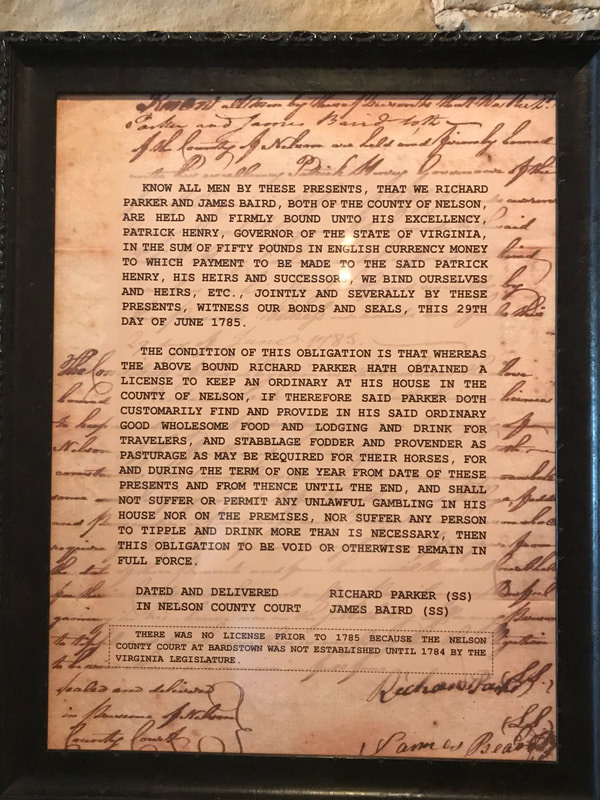 Know all men by these Presents that We Rich.
Parker and James Baird both
of the County of Nelson are held and firmly bound
unto his excellency Patrick Henry Governor of the
KNOW ALL MEN BY THESE PRESENTS, THAT WE RICHARD
PARKER AND JAMES BAIRD, BOTH OF THE COUNTY OF NELSON,
ARE HELD AND FIRMLY BOUND UNTO HIS EXCELLENCY,
PATRICK HENRY, GOVERNOR OF THE STATE OF VIRGINIA,
IN THE SUM OF FIFTY POUNDS IN ENGLISH CURRENCY MONEY
TO WHICH PAYMENT TO BE MADE TO THE SAID PATRICK
HENRY, HIS HEIRS AND SUCCESSORS, WE BIND OURSELVES
AND HEIRS, ETC., JOINTLY AND SEVERALLY BY THESE
PRESENTS, WITNESS OUR BONDS AND SEALS, THIS 29TH
DAY OF JUNE 1785.
THE CONDITION OF THIS OBLIGATION IS THAT WHEREAS
THE ABOVE BOUND RICHARD PARKER HATH OBTAINED A
LICENSE TO KEEP AN ORDINARY AT HIS HOUSE IN THE
COUNTY OF NELSON, IF THEREFORE SAID PARKER DOTH
CUSTOMARILY FIND AND PROVIDE IN HIS SAID ORDINARY
GOOD WHOLESOME FOOD AND LODGING AND DRINK FOR
TRAVELERS, AND STABBLAGE FODDER AND PROVENDER AS
PASTURAGE AS MAY BE REQUIRED FOR THEIR HORSES, FOR
AND DURING THE TERM OF ONE YEAR FROM DATE OF THESE
PRESENTS AND FROM THENCE UNTIL THE END, AND SHALL
NOT SUFFER OR PERMIT ANY UNLAWFUL GAMBLING IN HIS
HOUSE NOR ON THE PREMISES, NOR SUFFER ANY PERSON
TO TIPPLE AND DRINK MORE THAN IS NECESSARY, THEN
THIS OBLIGATION TO BE VOID OR OTHERWISE REMAIN IN
FULL FORCE.
DATED AND DELIVERED RICHARD PARKER (SS)
IN NELSON COUNTY COURT JAMES BAIRD (SS)
THERE WAS NO LICENSE PRIOR TO 1785 BECAUSE THE NELSON
COUNTY COURT AT BARDSTOWN WAS NOT ESTABLISHED UNTIL 1784 BY THE
VIRGINIA LEGISLATURE.
Sealed and delivered
in presence of Nelson
County Court